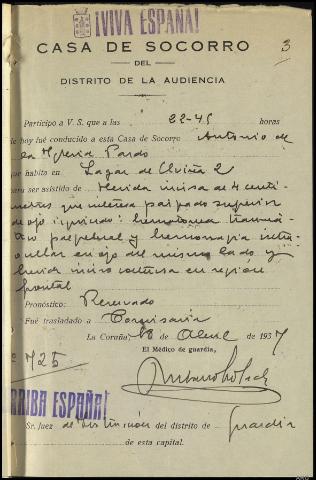 ¡VIVA ESPAÑA!
3
CASA DE SOCORRO
DEL
DISTRITO DE LA AUDIENCIA
Participo a V. S. que a las 22-45 horas
de hoy fué conducido a esta Casa de Socorro Antonio de
la Iglesia Pardo
que habita en Lugar de Elviña 2
para ser asistido de Herida incisa de 4 centi-
metros que interesa parpado superior
de ojo izquierdo: hematoma traumá-
tico palpebral y hemorragia intra-
ocular en ojo del mismo lado y
herida inciso contusa en region
frontal
Pronóstico: Reservado
Fué trasladado a Comisaria
La Coruña, 18 de Abril de 1937
El Médico de guardia,
nº 725
ARRIBA ESPAÑA!
Sr. Juez de Instrucción del distrito de Guardia
de esta capital.